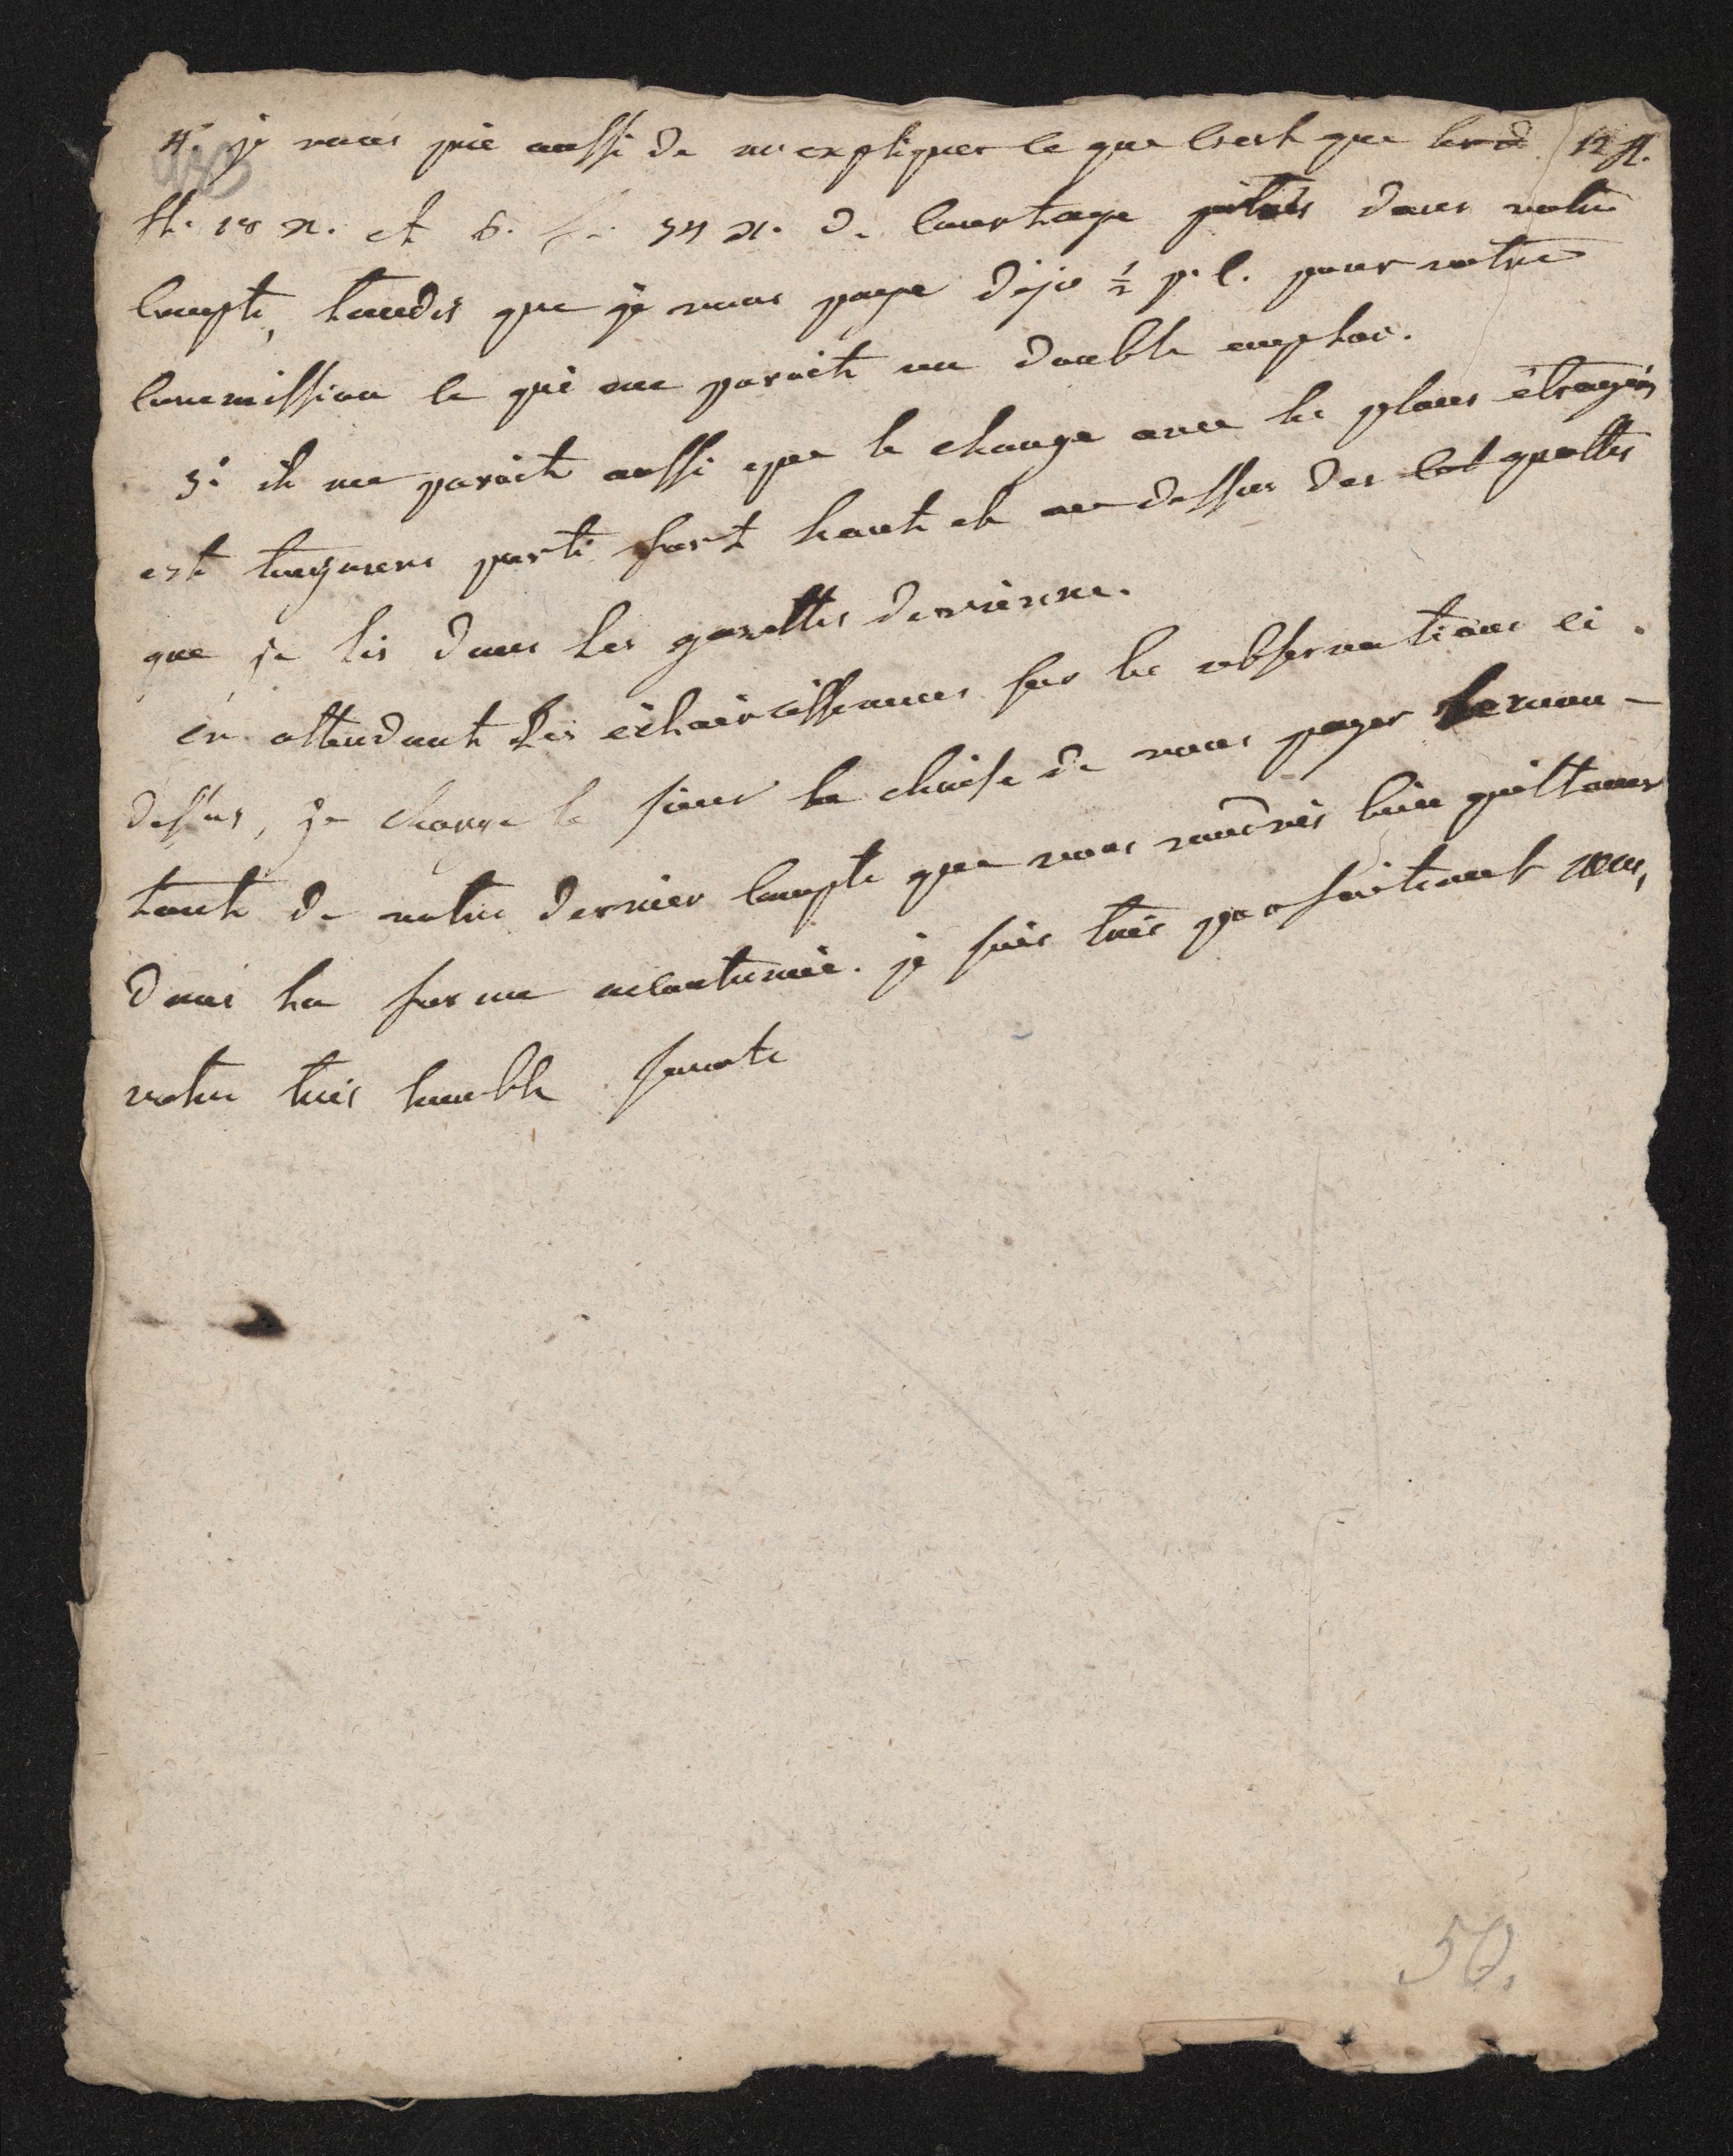 4°. je vous prie aussi de m'expliquer ce que c'est que les 12 fl.
fl. 18 x. et 6. fl. 54 x. de courtage portés dans votre
compte, tandis que je vous paye dejo ½ p. c. pour votre
commission ce qui me paroit un double emploi.
5°. il me paroit aussi que le change avec les places étrangés
est toujours porté fort haut et au dessus des cot quottes
que je lis dans les gazettes de vienne.
en attendant des éclaircissemens sur les observations ci-
dessus, je charge le sieur la chaise de vous payer le mon-
tant de votre dernier compte que vous voudrés bien quittancer
dans la forme accoutumée. je suis très parfaitement
votre très humble servante
50.